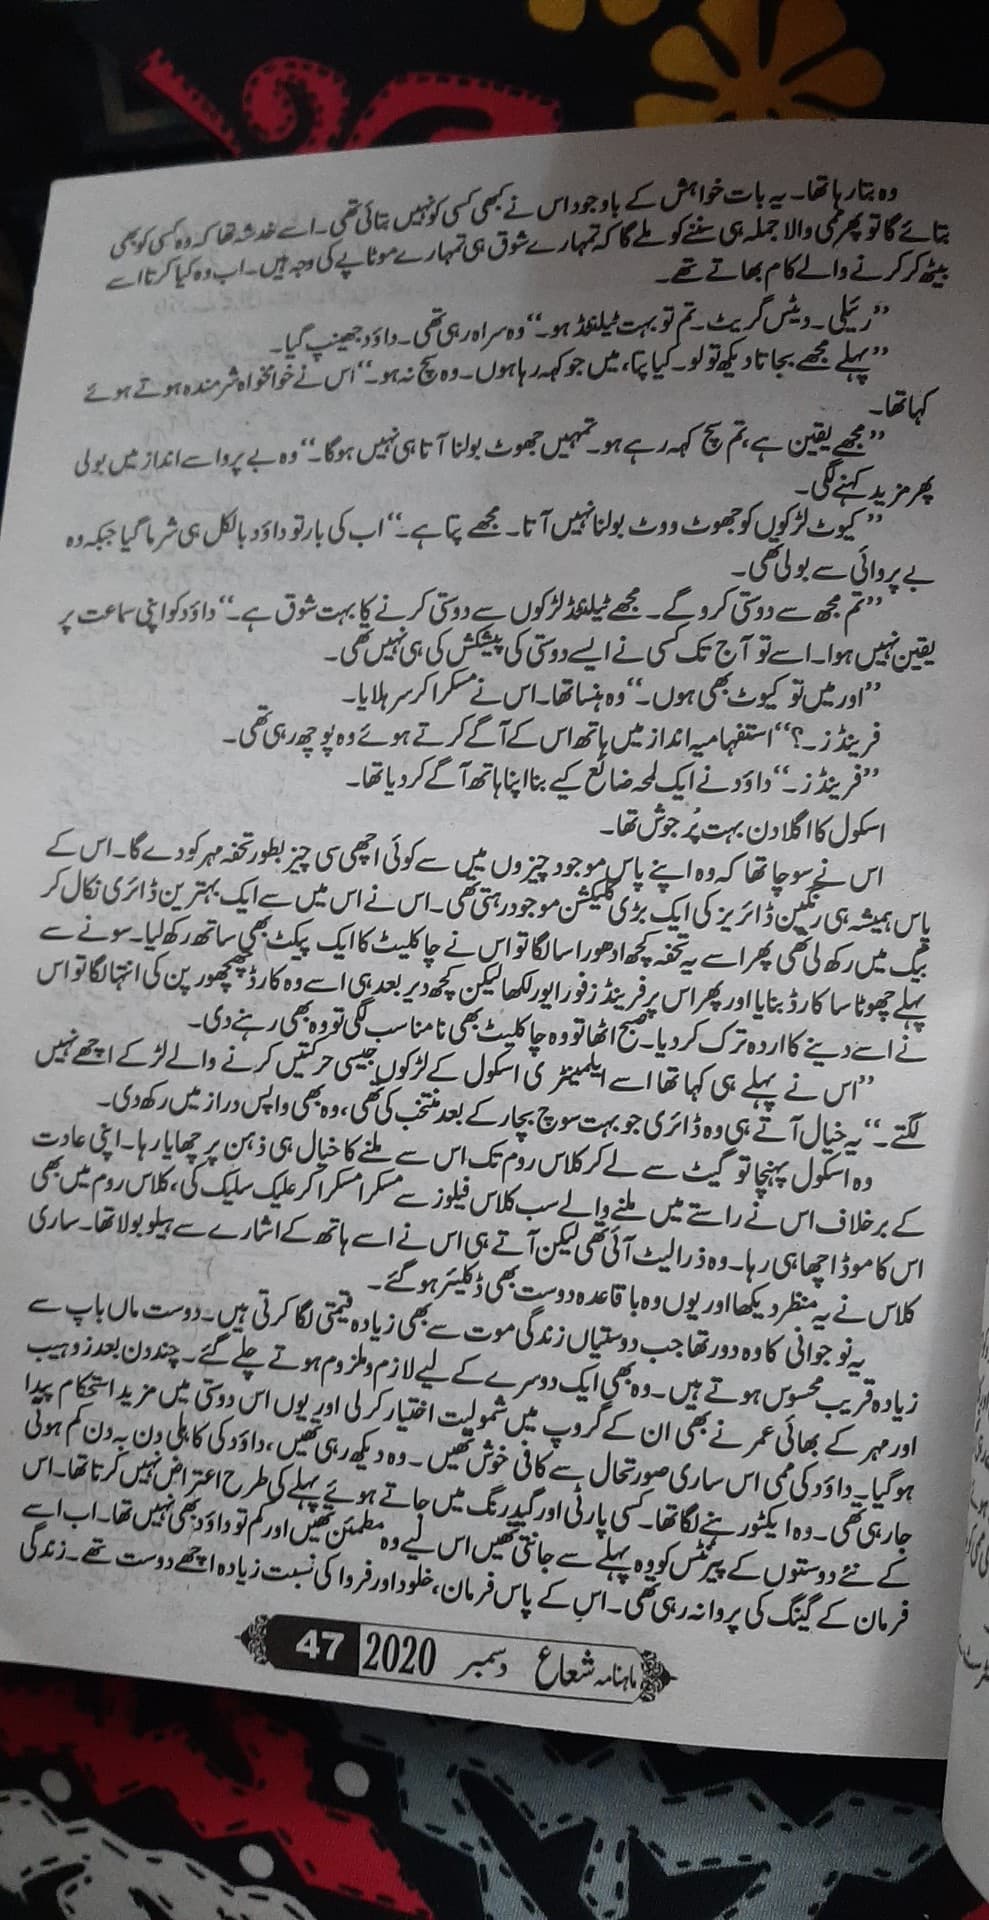 وہ بتا رہا تھا۔ یہ بات خواہش کے باوجود اس نے کبھی کسی کو نہیں بتائی تھی۔ اسے خدشہ تھا کہ وہ کسی کو بھی
بتائے گا تو پھر ممی والا جملہ ہی سننے کو ملے گا کہ تمہارے شوق ہی تمہارے موٹاپے کی وجہ ہیں۔ اب وہ کیا کرتا اسے
بیٹھ کر کرنے والے کام بھاتے تھے۔
”رئیلی۔ دیٹس گریٹ۔ تم تو بہت ٹیلنٹڈ ہو۔“ وہ سراہ رہی تھی۔ داؤد جھینپ گیا۔
”پہلے مجھے بجاتا دیکھ تو لو۔ کیا پتا، میں جو کہہ رہا ہوں۔ وہ سچ نہ ہو۔“ اس نے خوامخواہ شرمندہ ہوتے ہوئے
کہا تھا۔
”مجھے یقین ہے، تم سچ کہہ رہے ہو۔ تمہیں جھوٹ بولنا آتا ہی نہیں ہوگا۔“ وہ بے پروا سے انداز میں بولی
پھر مزید کہنے لگی۔
”کیوٹ لڑکوں کو جھوٹ ووٹ بولنا نہیں آتا۔ مجھے پتا ہے۔“ اب کی بار تو داؤد بالکل ہی شرما گیا جبکہ وہ
بے پروائی سے بولی تھی۔
”تم مجھ سے دوستی کرو گے۔ مجھے ٹیلنٹڈ لڑکوں سے دوستی کرنے کا بہت شوق ہے۔“ داؤد کو اپنی سماعت پر
یقین نہیں ہوا۔ اسے تو آج تک کسی نے ایسے دوستی کی پیشکش کی ہی نہیں تھی۔
”اور میں تو کیوٹ بھی ہوں۔“ وہ ہنسا تھا۔ اس نے مسکرا کر سر ہلایا۔
فرینڈز۔؟“ استفہامیہ انداز میں ہاتھ اس کے آگے کرتے ہوئے وہ پوچھ رہی تھی۔
”فرینڈز۔“ داؤد نے ایک لمحہ ضائع کیے بنا اپنا ہاتھ آگے کر دیا تھا۔
اسکول کا اگلا دن بہت پُر جوش تھا۔
اس نے سوچا تھا کہ وہ اپنے پاس موجود چیزوں میں سے کوئی اچھی سی چیز بطور تحفہ مہر کو دے گا۔ اس کے
پاس ہمیشہ ہی رنگین ڈائریز کی ایک بڑی کلیکشن موجود رہتی تھی۔ اس نے اس میں سے ایک بہترین ڈائری نکال کر
بیگ میں رکھ لی تھی پھر اسے یہ تحفہ کچھ ادھورا سا لگا تو اس نے چاکلیٹ کا ایک پیکٹ بھی ساتھ رکھ لیا۔ سونے سے
پہلے چھوٹا سا کارڈ بنایا اور پھر اس پر فرینڈز فور ایور لکھا لیکن کچھ دیر بعد ہی اسے وہ کارڈ چھچھورپن کی انتہا لگا تو اس
نے اسے دینے کا اردہ ترک کر دیا۔ صبح اٹھا تو وہ چاکلیٹ بھی نامناسب لگی تو وہ بھی رہنے دی۔
”اس نے پہلے ہی کہا تھا اسے ایلمینٹری اسکول کے لڑکوں جیسی حرکتیں کرنے والے لڑکے اچھے نہیں
لگتے۔“ یہ خیال آتے ہی وہ ڈائری جو بہت سوچ بچار کے بعد منتخب کی تھی، وہ بھی واپس دراز میں رکھ دی۔
وہ اسکول پہنچا تو گیٹ سے لے کر کلاس روم تک اس سے ملنے کا خیال ہی ذہن پر چھایا رہا۔ اپنی عادت
کے برخلاف اس نے راستے میں ملنے والے سب کلاس فیلوز سے مسکرا مسکرا کر علیک سلیک کی، کلاس روم میں بھی
اس کا موڈ اچھا ہی رہا۔ وہ ذرا لیٹ آئی تھی لیکن آتے ہی اس نے اسے ہاتھ کے اشارے سے ہیلو بولا تھا۔ ساری
کلاس نے یہ منظر دیکھا اور یوں وہ باقاعدہ دوست بھی ڈکلیئر ہو گئے۔
یہ نوجوانی کا وہ دور تھا جب دوستیاں زندگی موت سے بھی زیادہ قیمتی لگا کرتی ہیں۔ دوست ماں باپ سے
زیادہ قریب محسوس ہوتے ہیں۔ وہ بھی ایک دوسرے کے لیے لازم و ملزوم ہوتے چلے گئے۔ چند دن بعد زوہیب
اور مہر کے بھائی عمر نے بھی ان کے گروپ میں شمولیت اختیار کرلی اور یوں اس دوستی میں مزید استحکام پیدا
ہو گیا۔ داؤد کی ممی اس ساری صورتحال سے کافی خوش تھیں۔ وہ دیکھ رہی تھیں، داؤد کی کاہلی دن بہ دن کم ہوتی
جا رہی تھی۔ وہ ایکٹور بننے لگا تھا۔ کسی پارٹی اور گیدرنگ میں جاتے ہوئے پہلے کی طرح اعتراض نہیں کرتا تھا۔ اس
کے نئے دوستوں کے پیرنٹس کو وہ پہلے سے جانتی تھیں اس لیے وہ مطمئن تھیں اور کم تو داؤد بھی نہیں تھا۔ اب اسے
فرمان کے گینگ کی پروا نہ رہی تھی۔ اس کے پاس فرمان، خلود اور فروا کی نسبت زیادہ اچھے دوست تھے۔ زندگی
ماہنامہ شعاع دسمبر 2020 47